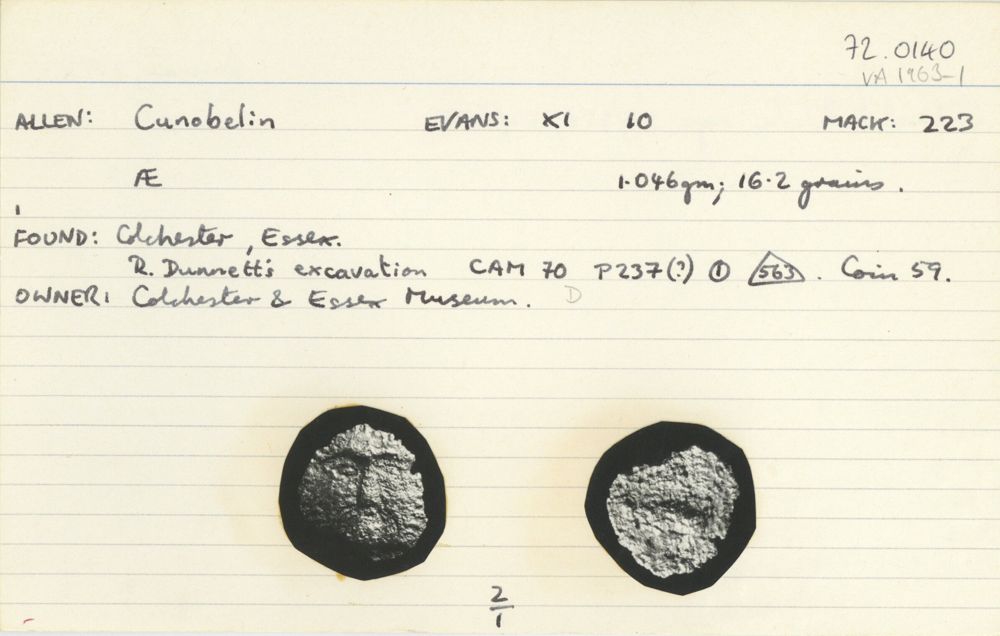 72.0140
VA 1963-1
ALLEN: Cunobelin EVANS: XI 10 MACK: 223
Æ 1.046gm; 16.2 grains.
FOUND: Colchester, Essex.
R. Dunnett's excavation CAM 70 P237(?) ① 563. Coin 59.
OWNER: Colchester & Essex Museum. D
2
1